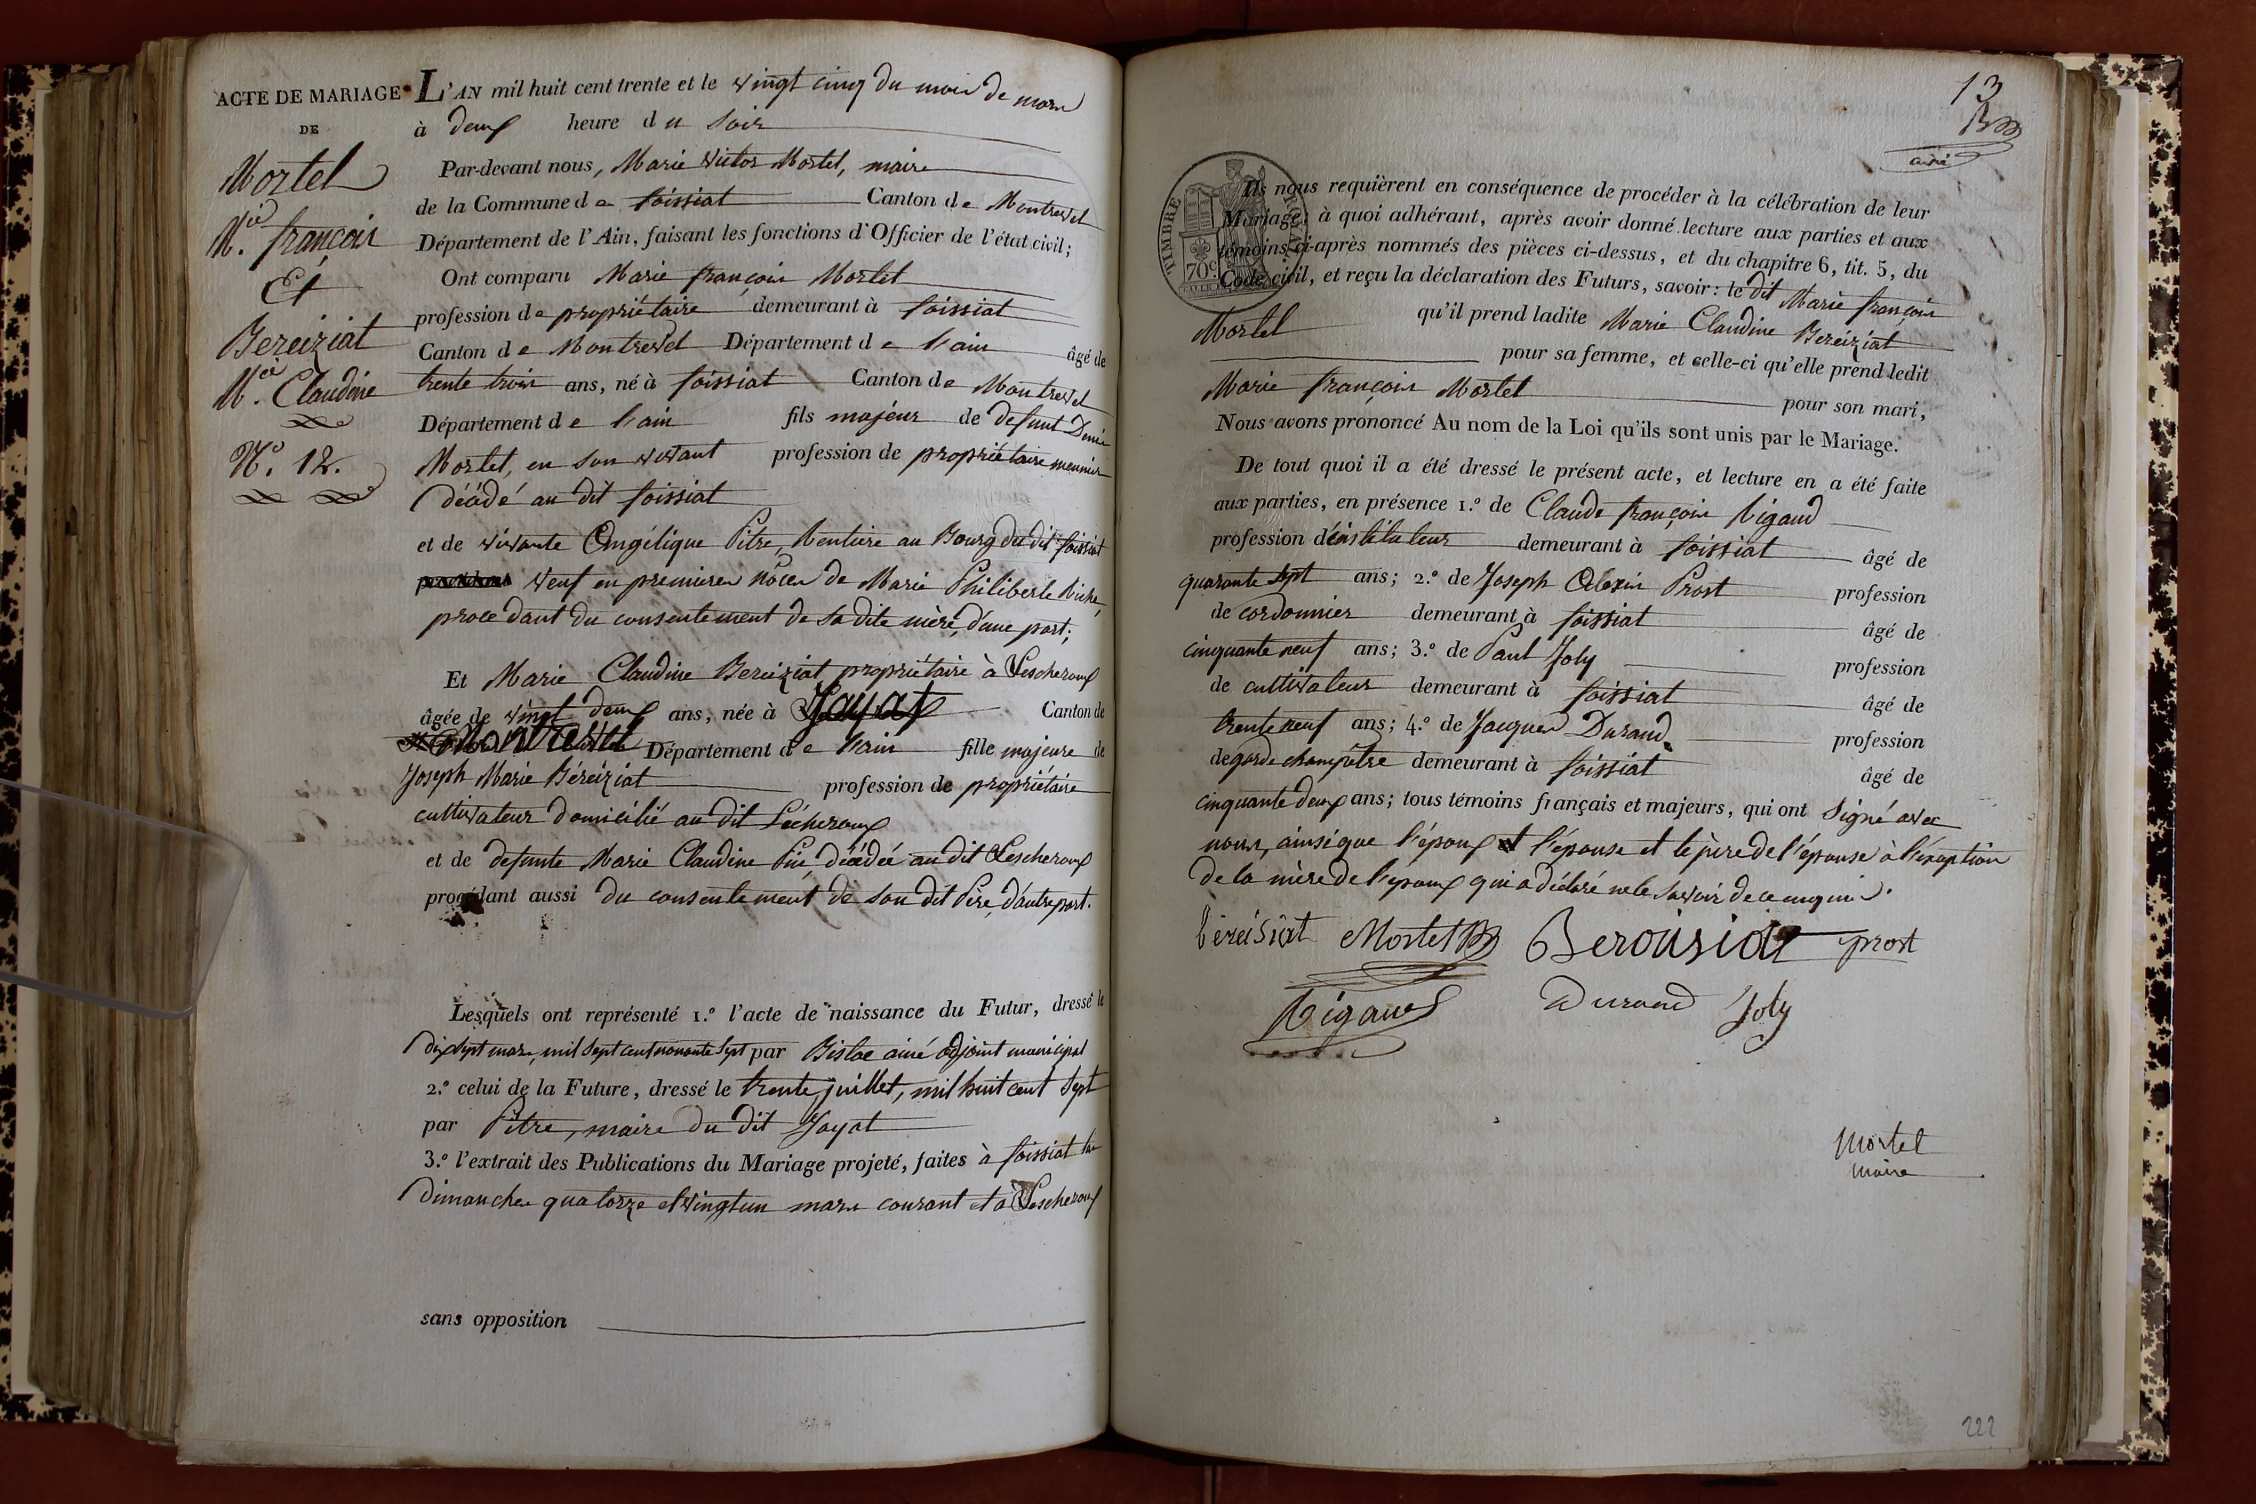 ACTE DE MARIAGE
DE
Mortel
Mie. françois
Et
Bereiziat
Mie. Claudine
N.º 12.
L'AN mil huit cent trente et le vingt cinq du mois de mars
à deux heure du soir
Par-devant nous, Marie Victor Mortel, maire
de la Commune de foissiat Canton de Montrevel
Département de l'Ain, faisant les fonctions d'Officier de l'état civil;
Ont comparu Marie françois Mortel
profession de propriétaire demeurant à foissiat
Canton de Montrevel Département de l'ain âgé de
trente trois ans, né à foissiat Canton de Montrevel
Département de l'ain fils majeur de defunt Denis
Mortel, en son vivant profession de propriétaire meunier
décédé au dit foissiat
et de vivante Angélique Pitre, Rentière au Bourg du dit foissiat
veuf en premieres nôces de Marie Philiberte Riche,
procedant du consentement de sa dite mère, d'une part;
Et Marie Claudine Bereiziat propriétaire à Lescheroux
âgée de vingt deux ans, née à Jayat Canton de
Montrevel Département de l'ain fille majeure de
Joseph Marie Béreiziat profession de propriétaire
cultivateur domicilié au dit Lécheroux
et de defunte Marie Claudine Piré décédée au dit Lescheroux
procédant aussi du consentement de son dit Père, d'autre part.
Lesquels ont représenté 1.º l'acte de naissance du Futur, dressé le
dix sept mars, mil sept cent nonante sept par Bistac ainé adjoint municipal
2.º celui de la Future, dressé le trente juillet, mil huit cent sept
par Pitre, maire du dit Jayat
3.º l'extrait des Publications du Mariage projeté, faites à foissiat les
dimanches quatorze et vingt un mars courant et à Lescheroux
sans opposition
13
TIMBRE ROYAL
70c
Ils nous requièrent en conséquence de procéder à la célébration de leur
Mariage; à quoi adhérant, après avoir donné lecture aux parties et aux
témoins ci-après nommés des pièces ci-dessus, et du chapitre 6, tit. 5, du
Code civil, et reçu la déclaration des Futurs, savoir: le dit Marie françois
Mortel qu'il prend ladite Marie Claudine Bereiziat
pour sa femme, et celle-ci qu'elle prend ledit
Marie françois Mortel pour son mari,
Nous avons prononcé Au nom de la Loi qu'ils sont unis par le Mariage.
De tout quoi il a été dressé le présent acte, et lecture en a été faite
aux parties, en présence 1.º de Claude françois Rigaud
profession d'instituteur demeurant à foissiat âgé de
quarante sept ans; 2.º de Joseph Alexis Prost profession
de cordonnier demeurant à foissiat âgé de
cinquante neuf ans; 3.º de Paul Joly profession
de cultivateur demeurant à foissiat âgé de
trente neuf ans; 4.º de Jacques Durand profession
de garde champêtre demeurant à foissiat âgé de
cinquante deux ans; tous témoins français et majeurs, qui ont signé avec
nous, ainsi que l'époux et l'épouse et le père de l'épouse à l'éxeption
de la mère de l'epoux qui a déclaré ne le savoir de ce enquis.
béréisiat Mortel Berousiat prost
Rigaud Durand Joly
Mortel
maire
222